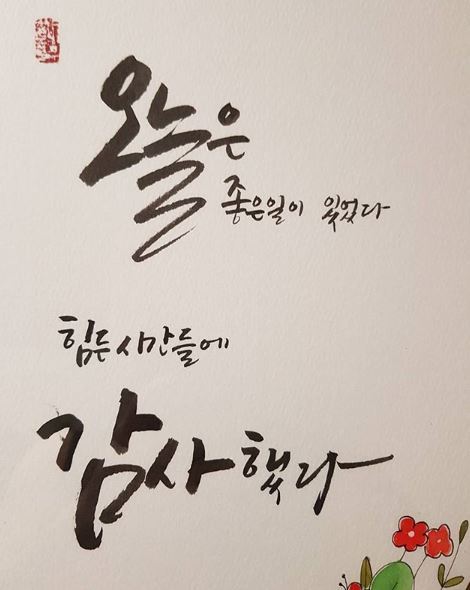 오늘은
좋은일이 있었다
힘든시간들에
감사했다